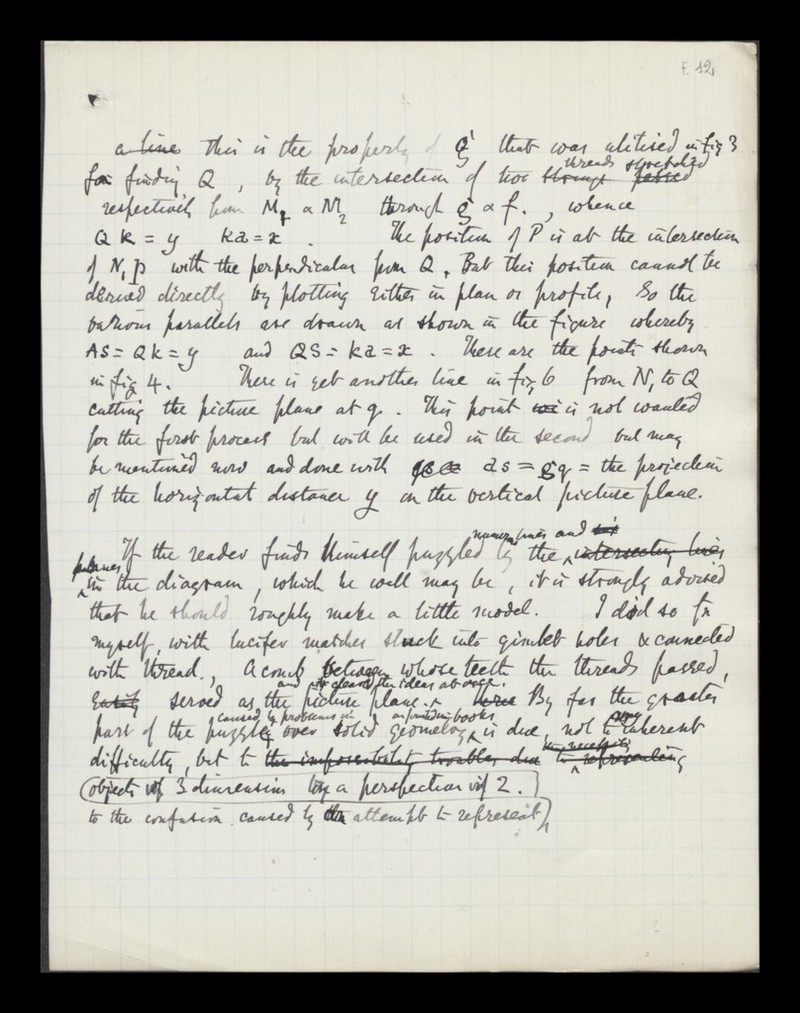 f. 12
a line this is the property of g that was utilised in fig 3
threads stretched
for finding Q, by the intersection of two strings passed
respectively from M, & M2 through g & f., whence
Qk = y ka = x. The position of P is at the intersection
of N, p with the perpendicular from Q. But this position cannot be
derived directly by plotting either in plan or profile, So the
various parallels are drawn as shown in the figure whereby
AS = Qk = y and QS = ka = x. These are the points shown
in fig 4. There is yet another line in fig 6 from N, to Q
cutting the picture plane at q. This point is not wanted
for the first process but will be used in the second but may
be mentioned now and done with as = gq = the projection
of the horizontal distance y on the vertical picture plane.
numerous lines and
If the reader finds himself puzzled by the intersecting lines
planes
in the diagram, which he well may be, it is strongly advised
that he should roughly make a little model. I did so for
myself, with lucifer matches stuck into gimlet holes & connected
with thread., A comb between whose teeth the threads passed,
and cleared the ideas at once.
Easily served as the picture plane. Here By far the greater
caused by problems in as printed in books any
part of the puzzle over solid geometry is due, not to inherent
the necessity
difficulty, but to the impossibility troubles due to representing
objects of 3 dimension by a perspective of 2.
to the confusion caused by the attempt to represent